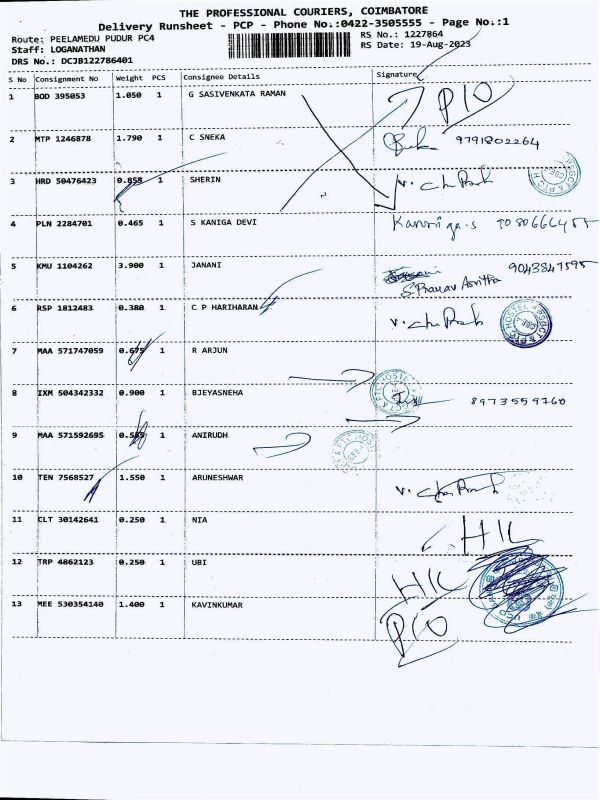 THE PROFESSIONAL COURIERS, COIMBATORE
Delivery Runsheet - PCP - Phone No.:0422-3505555 - Page No.:1
Route: PEELAMEDU PUDUR PC4 RS No.: 1227864
Staff: LOGANATHAN RS Date: 19-Aug-2023
DRS No.: DCJB122786401
S No Consignment No Weight PCS Consignee Details Signature
1 BOD 395053 1.050 1 G SASIVENKATA RAMAN P10
2 MTP 1246878 1.790 1 C SNEKA 9791802264
3 HRD 50476423 0.858 1 SHERIN
4 PLN 2284701 0.465 1 S KANIGA DEVI
5 KMU 1104262 3.900 1 JANANI 9043847595
S. Pranav Asvitha
6 RSP 1812483 0.380 1 C P HARIHARAN
7 MAA 571747059 0.675 1 R ARJUN
8 IXM 504342332 0.900 1 BJEYASNEHA 8973559760
9 MAA 571592695 1 ANIRUDH
10 TEN 7568527 1.550 1 ARUNESHWAR
11 CLT 30142641 0.250 1 NIA HIL
12 TRP 4862123 0.250 1 UBI HIL
13 MEE 530354140 1.400 1 KAVINKUMAR P10